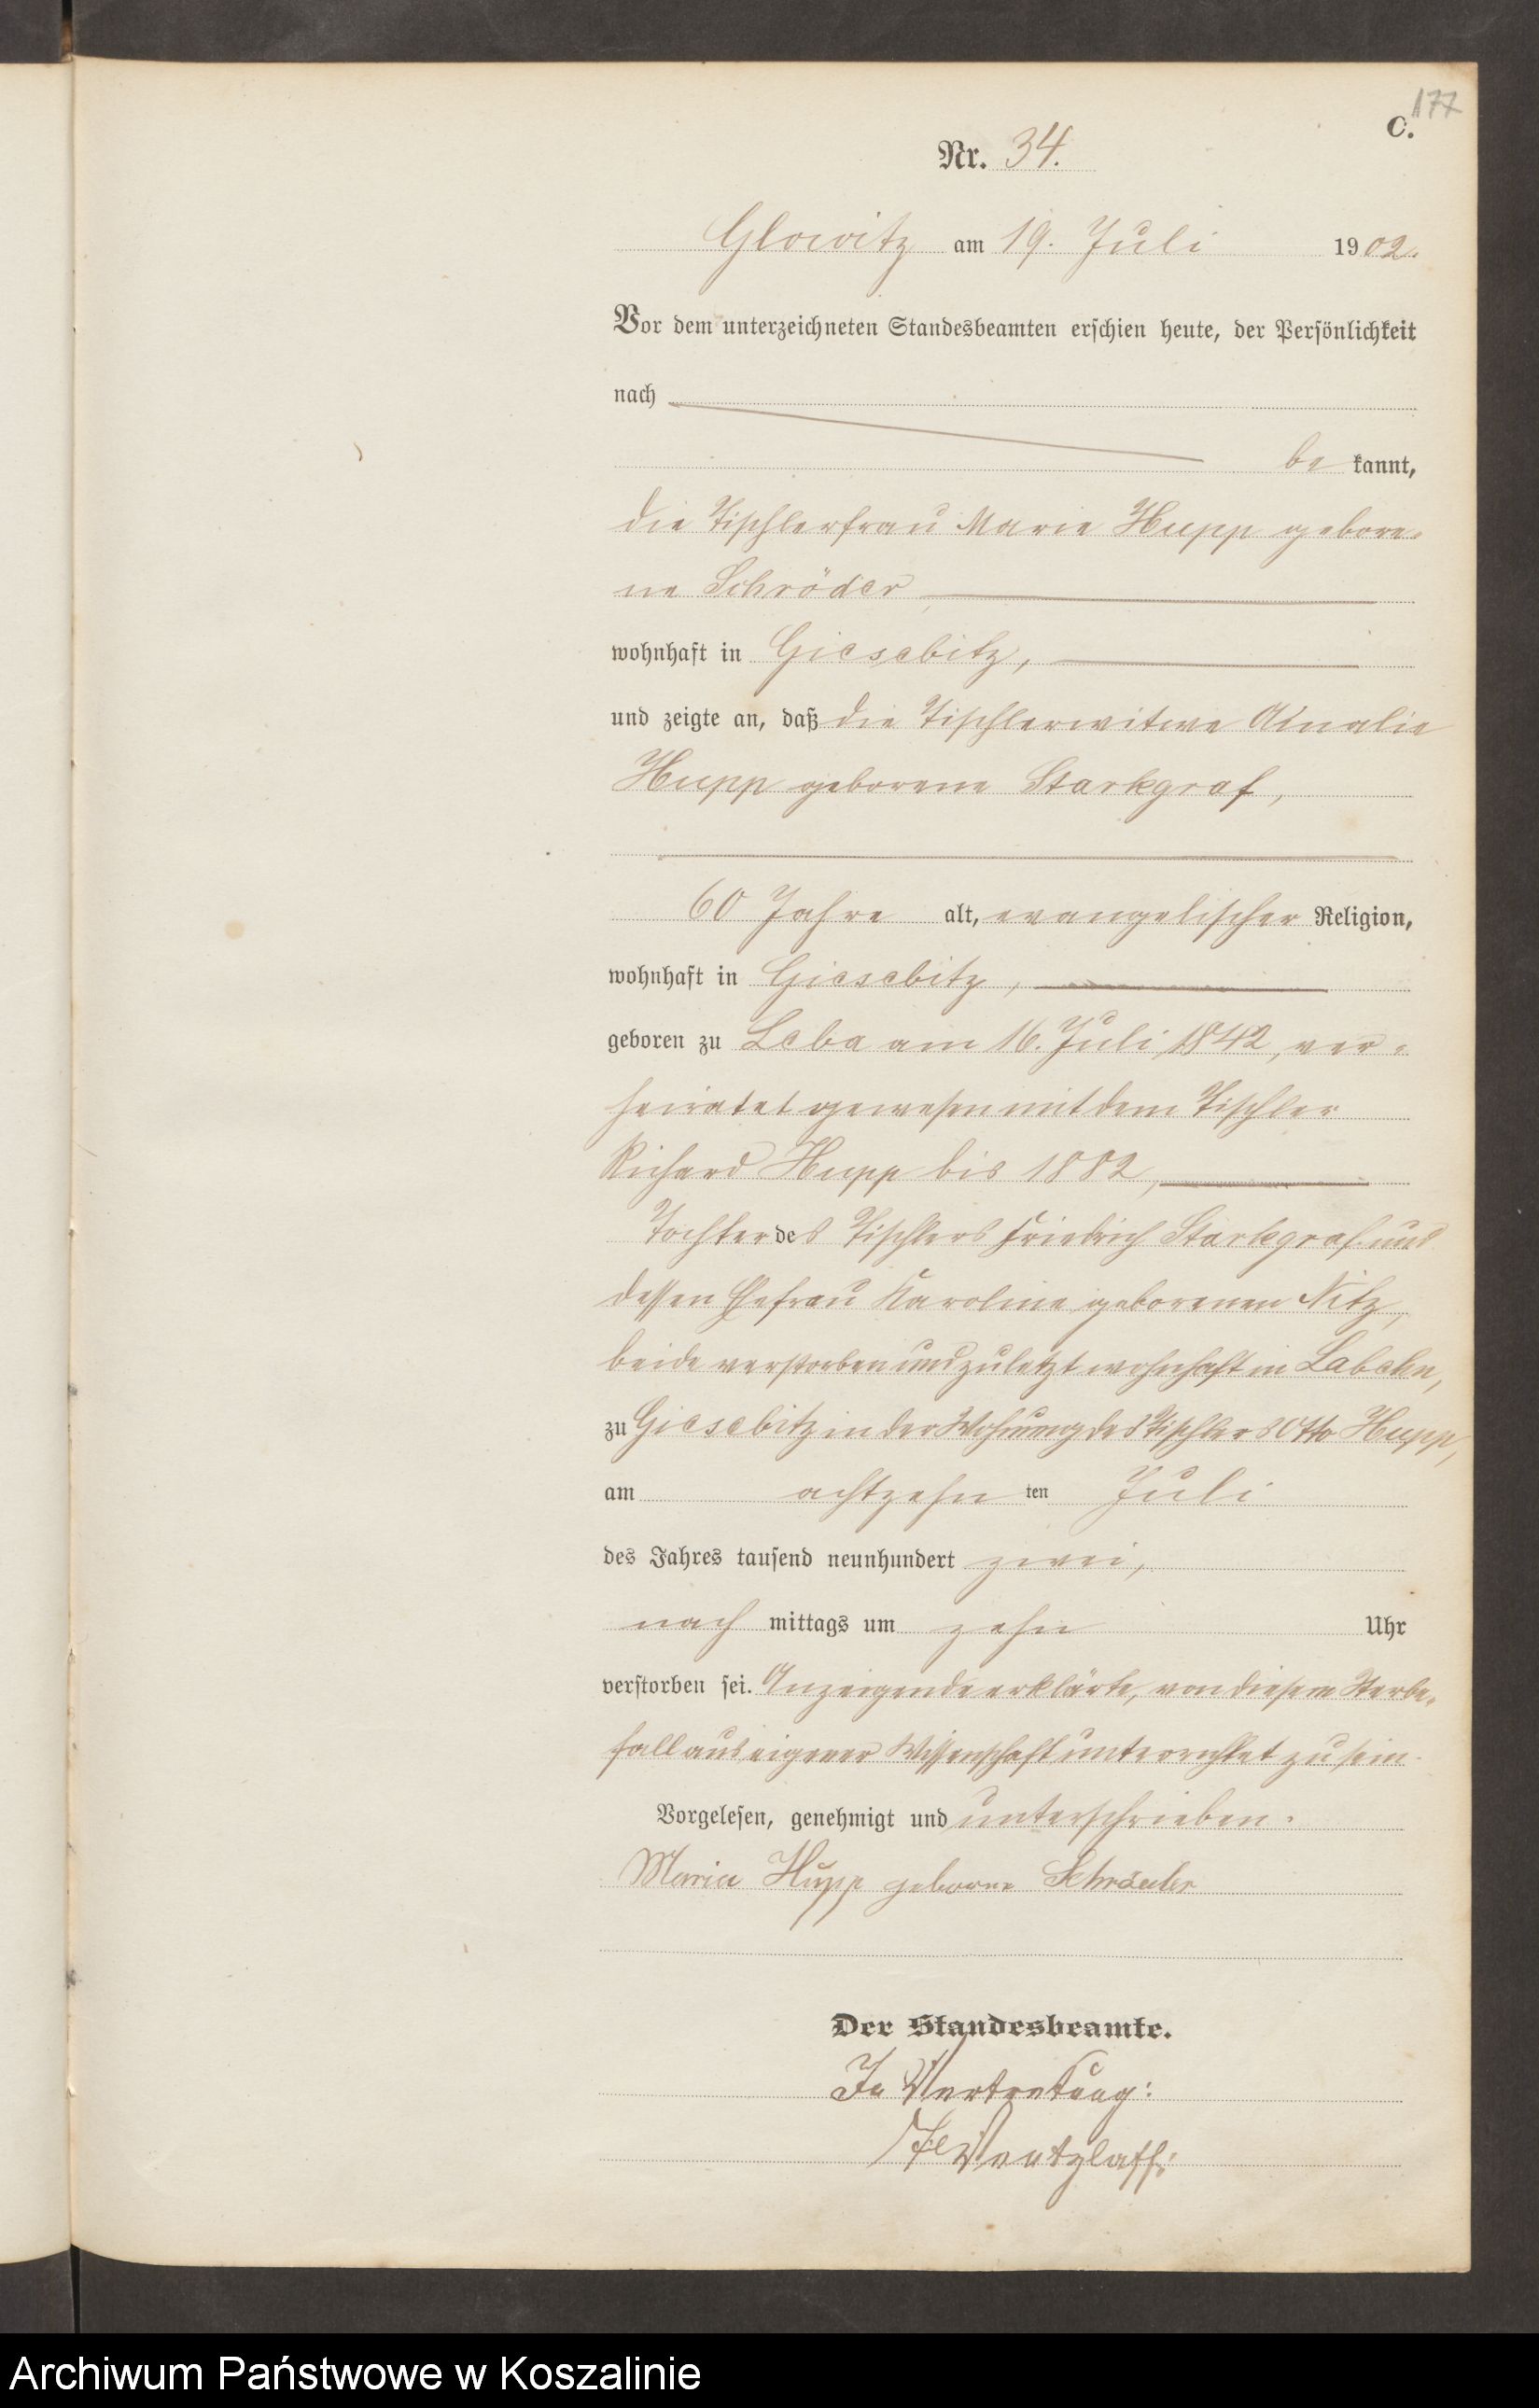 177
C.
Nr. 34.
Glowitz am 19. Juli 1902.
Vor dem unterzeichneten Standesbeamten erschien heute, der Persönlichkeit
nach
be kannt,
die Tischlerfrau Marie Hupp gebore-
ne Schröder
wohnhaft in Giesebitz,
und zeigte an, daß die Tischlerwitwe Amalie
Hupp geborene Starkgraf,
60 Jahre alt, evangelischer Religion,
wohnhaft in Giesebitz,
geboren zu Leba am 16. Juli 1842, ver-
heiratet gewesen mit dem Tischler
Richard Hupp bis 1882,
Tochter des Tischlers Friedrich Starkgraf und
dessen Ehefrau Karoline geborenen Nitz,
beide verstorben und zuletzt wohnhaft in Labehn,
zu Giesebitz in der Wohnung des Tischlers Otto Hupp,
am achtzehn ten Juli
des Jahres tausend neunhundert zwei,
nach mittags um zehn Uhr
verstorben sei. Anzeigende erklärte, von diesem Sterbe-
fall aus eigener Wissenschaft unterrichtet zu sein.
Vorgelesen, genehmigt und unterschrieben.
Maria Hupp geborne Schröder
Der Standesbeamte.
In Vertretung:
Wentzlaff.
Archiwum Państwowe w Koszalinie